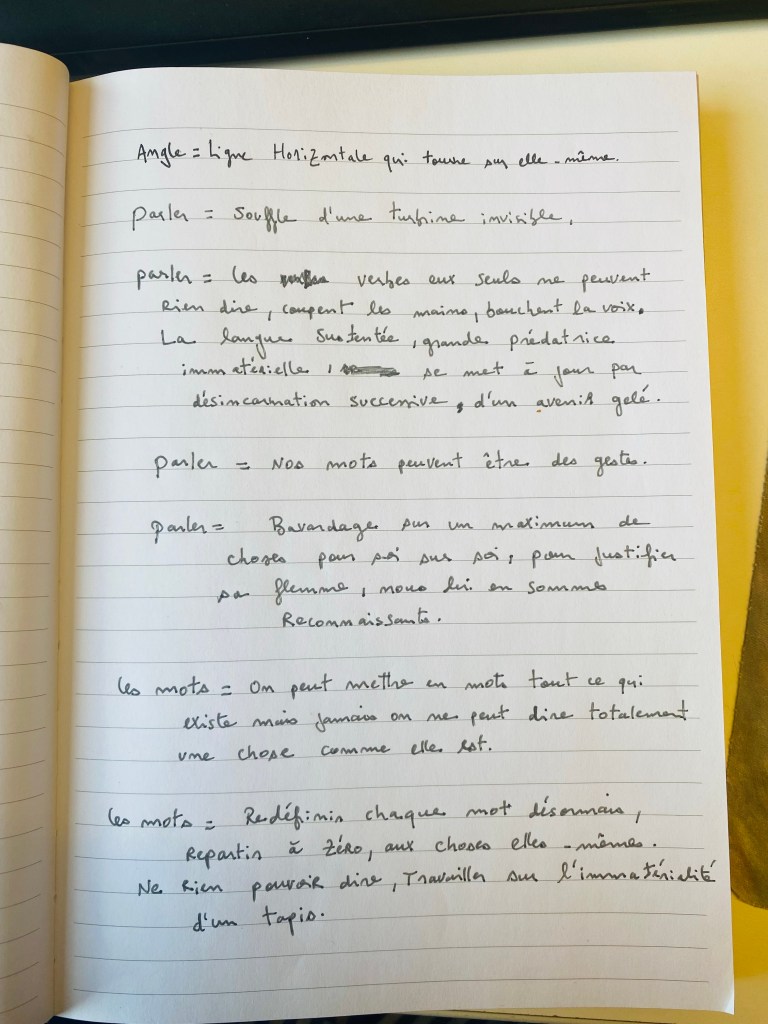 Angle = Ligne Horizontale qui tourne sur elle-même.
parler = Souffle d'une turbine invisible,
parler = les verbes eux seuls ne peuvent
Rien dire, coupent les mains, bouchent la voix.
La langue Sustentée, grande prédatrice
immatérielle, se met à jour par
désincarnation successive, d'un avenir gelé.
parler = Nos mots peuvent être des gestes.
parler = Bavardage sur un maximum de
choses pour soi sur soi, pour justifier
sa flemme, nous lui en sommes
Reconnaissants.
les mots = On peut mettre en mots tout ce qui
existe mais jamais on ne peut dire totalement
une chose comme elle est.
les mots = Redéfinir chaque mot désormais,
Repartir à Zéro, aux choses elles-mêmes.
Ne Rien pouvoir dire, Travailler sur l'immatérialité
d'un tapis.